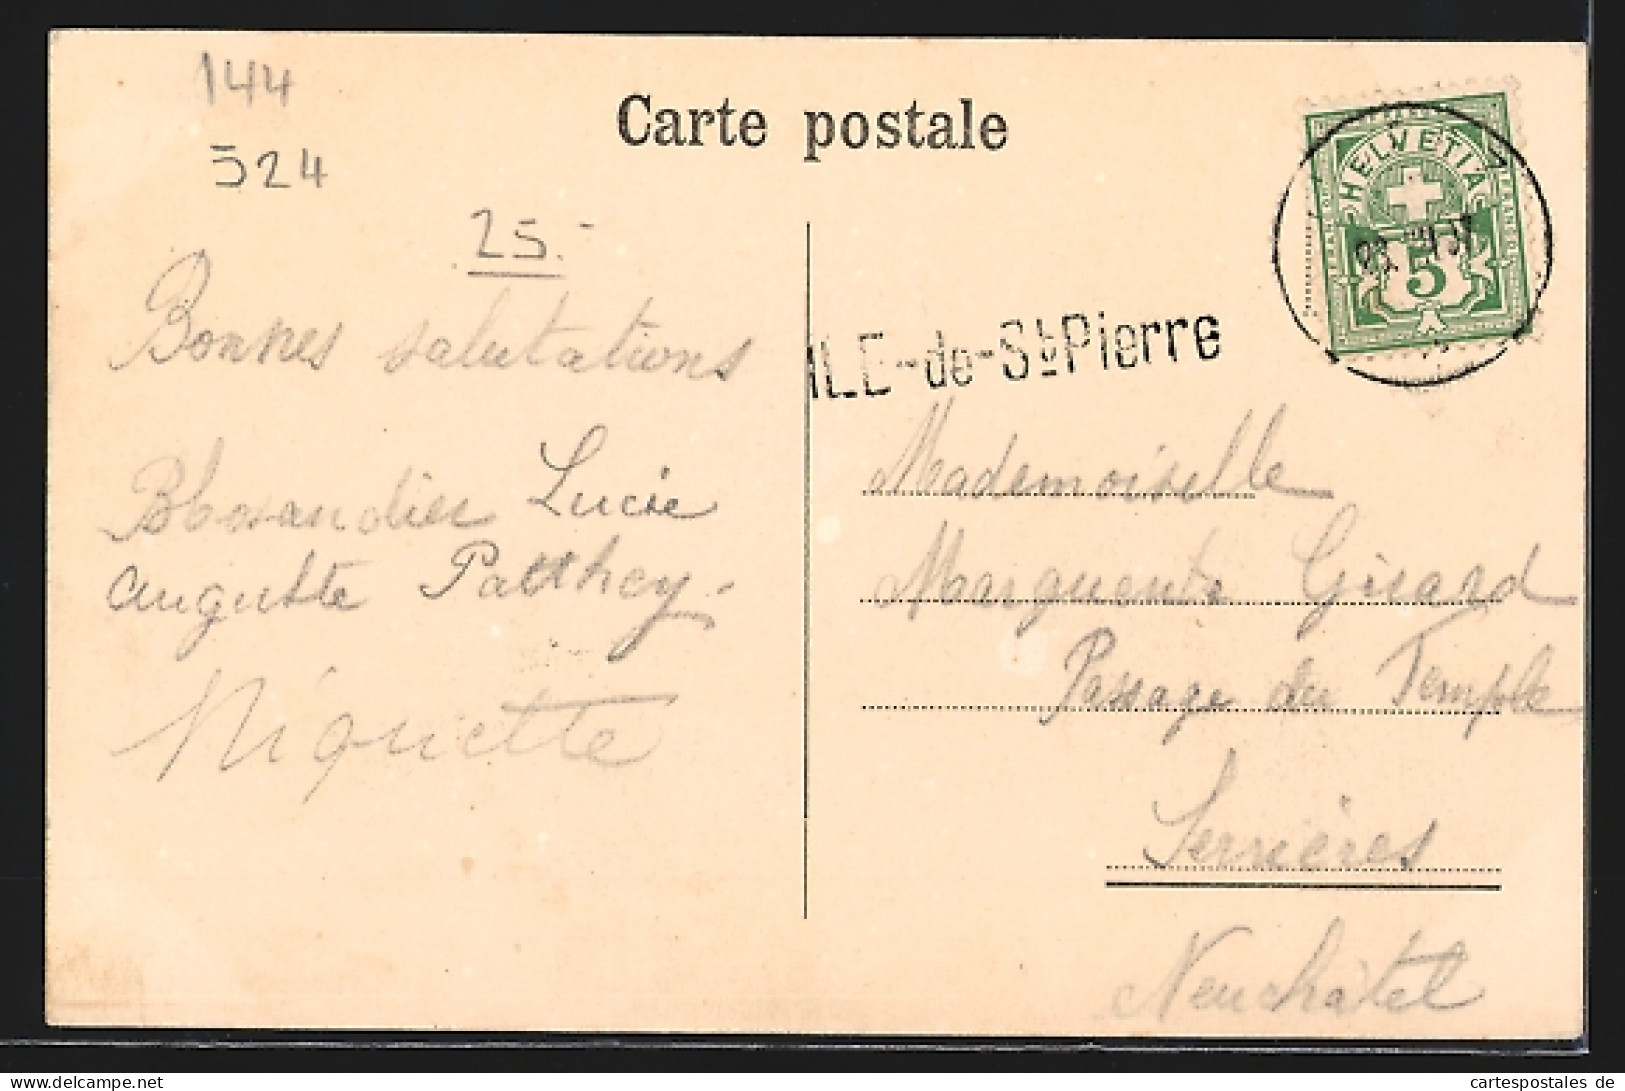 144
524
Carte postale
25.-
HELVETIA
5
ILE-de-St Pierre
Bonnes salutations
Lucie
Auguste Patthey.
Niquette
Mademoiselle
Marguerite Girard
Passage du Temple
Serrières
Neuchâtel
cartespostales de